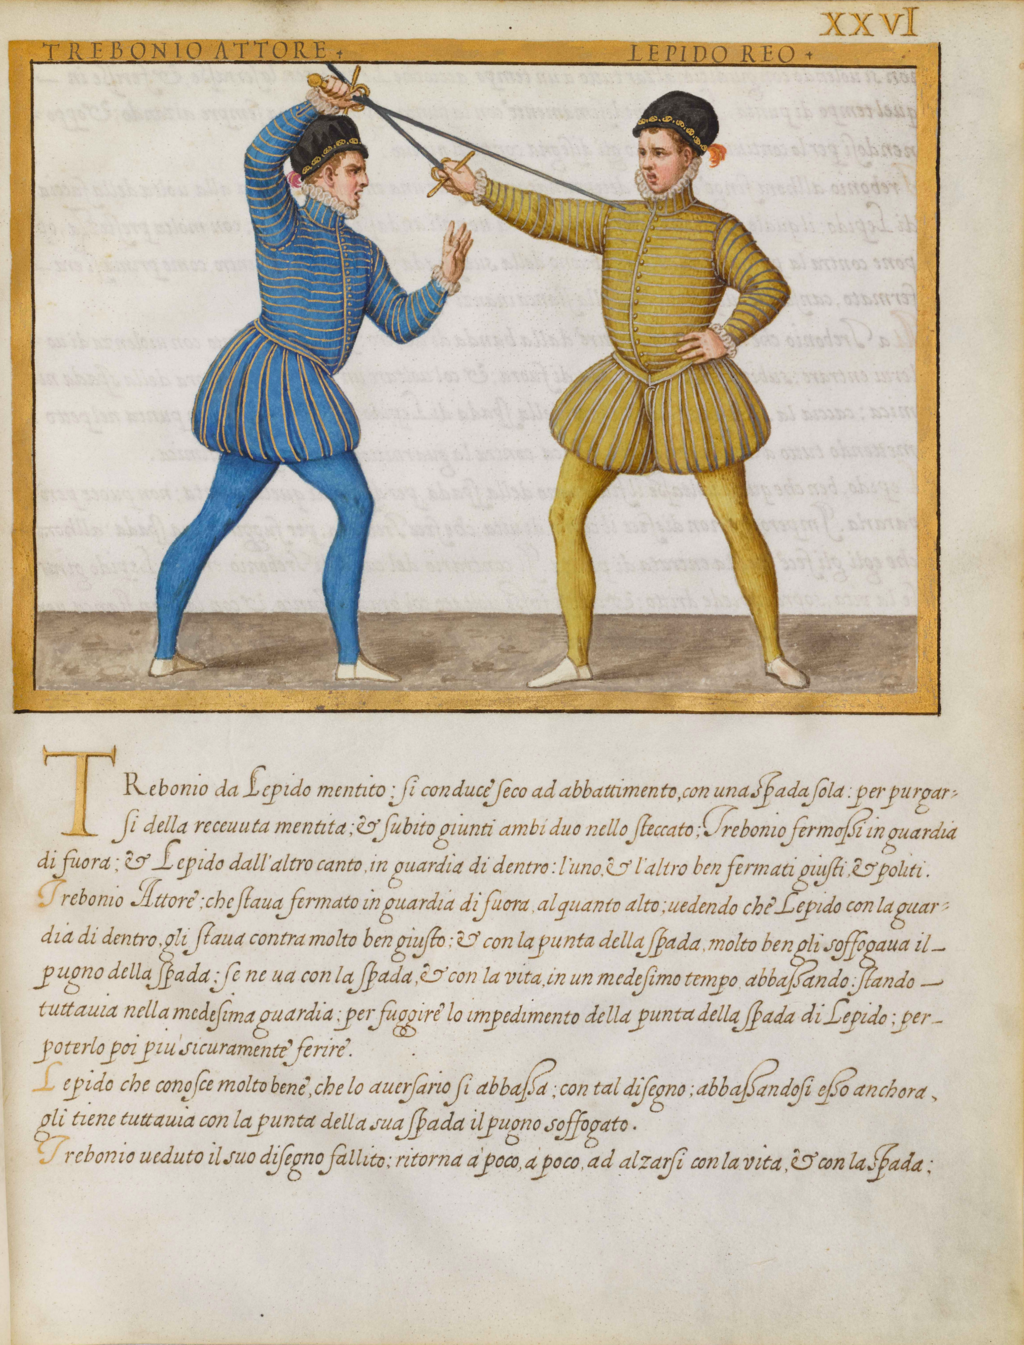 XXVI
TREBONIO ATTORE +
LEPIDO REO +
TRebonio da Lepido mentito; si conduce seco ad abbattimento, con una spada sola: per purgar=
si della receuuta mentita; & subito giunti ambi duo nello steccato; Trebonio fermossi in guardia
di fuora; & Lepido dall'altro canto, in guardia di dentro: l'uno, & l'altro ben fermati giusti, & politi.
Trebonio Attore; che staua fermato in guardia di fuora, alquanto alto; uedendo che Lepido con la guar=
dia di dentro, gli staua contra molto ben giusto; & con la punta della spada, molto ben gli soffogaua il_
pugno della spada; se ne ua con la spada, & con la vita, in un medesimo tempo abbassando: stando _
tuttauia nella medesima guardia; per fuggire lo impedimento della punta della spada di Lepido; per_
poterlo poi piu sicuramente ferire.
Lepido che conosce molto bene, che lo auersario si abbassa; con tal disegno; abbassandosi esso anchora,
gli tiene tuttauia con la punta della sua spada il pugno soffogato.
Trebonio ueduto il suo disegno fallito; ritorna à poco, à poco, ad alzarsi con la vita, & con la spada;